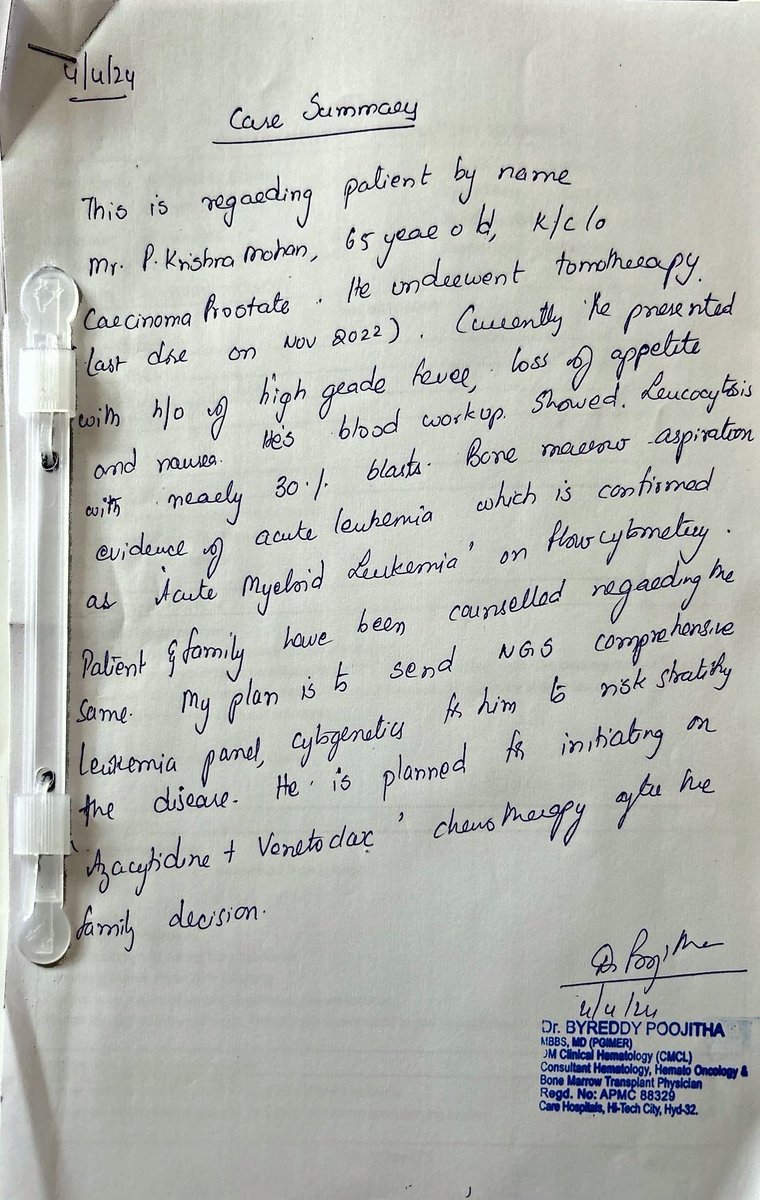 4/4/24
Case Summary
This is regarding patient by name
Mr. P. Krishna Mohan, 65 year old, K/c/o
Carcinoma Prostate. He underwent tomotherapy.
Last dose on Nov 2022). Currently he presented
with h/o of high grade fever, loss of appetite
and nausea. He's blood workup. Showed. Leucocytosis
with nearly 30% blasts. Bone marrow aspiration
evidence of acute leukemia which is confirmed
as 'Acute Myeloid Leukemia' on flowcytometry.
Patient & family have been counselled regarding the
same. My plan is to send NGS comprehensive
Leukemia panel, cytogenetics for him to risk stratify
the disease. He is planned for initiating on
'Azacytidine + Venetoclax' chemotherapy after the
family decision.
4/4/24
Dr. BYREDDY POOJITHA
MBBS, MD (PGIMER)
DM Clinical Hematology (CMCL)
Consultant Hematology, Hemato Oncology &
Bone Marrow Transplant Physician
Regd. No: APMC 88329
Care Hospitals, Hi-Tech City, Hyd-32.